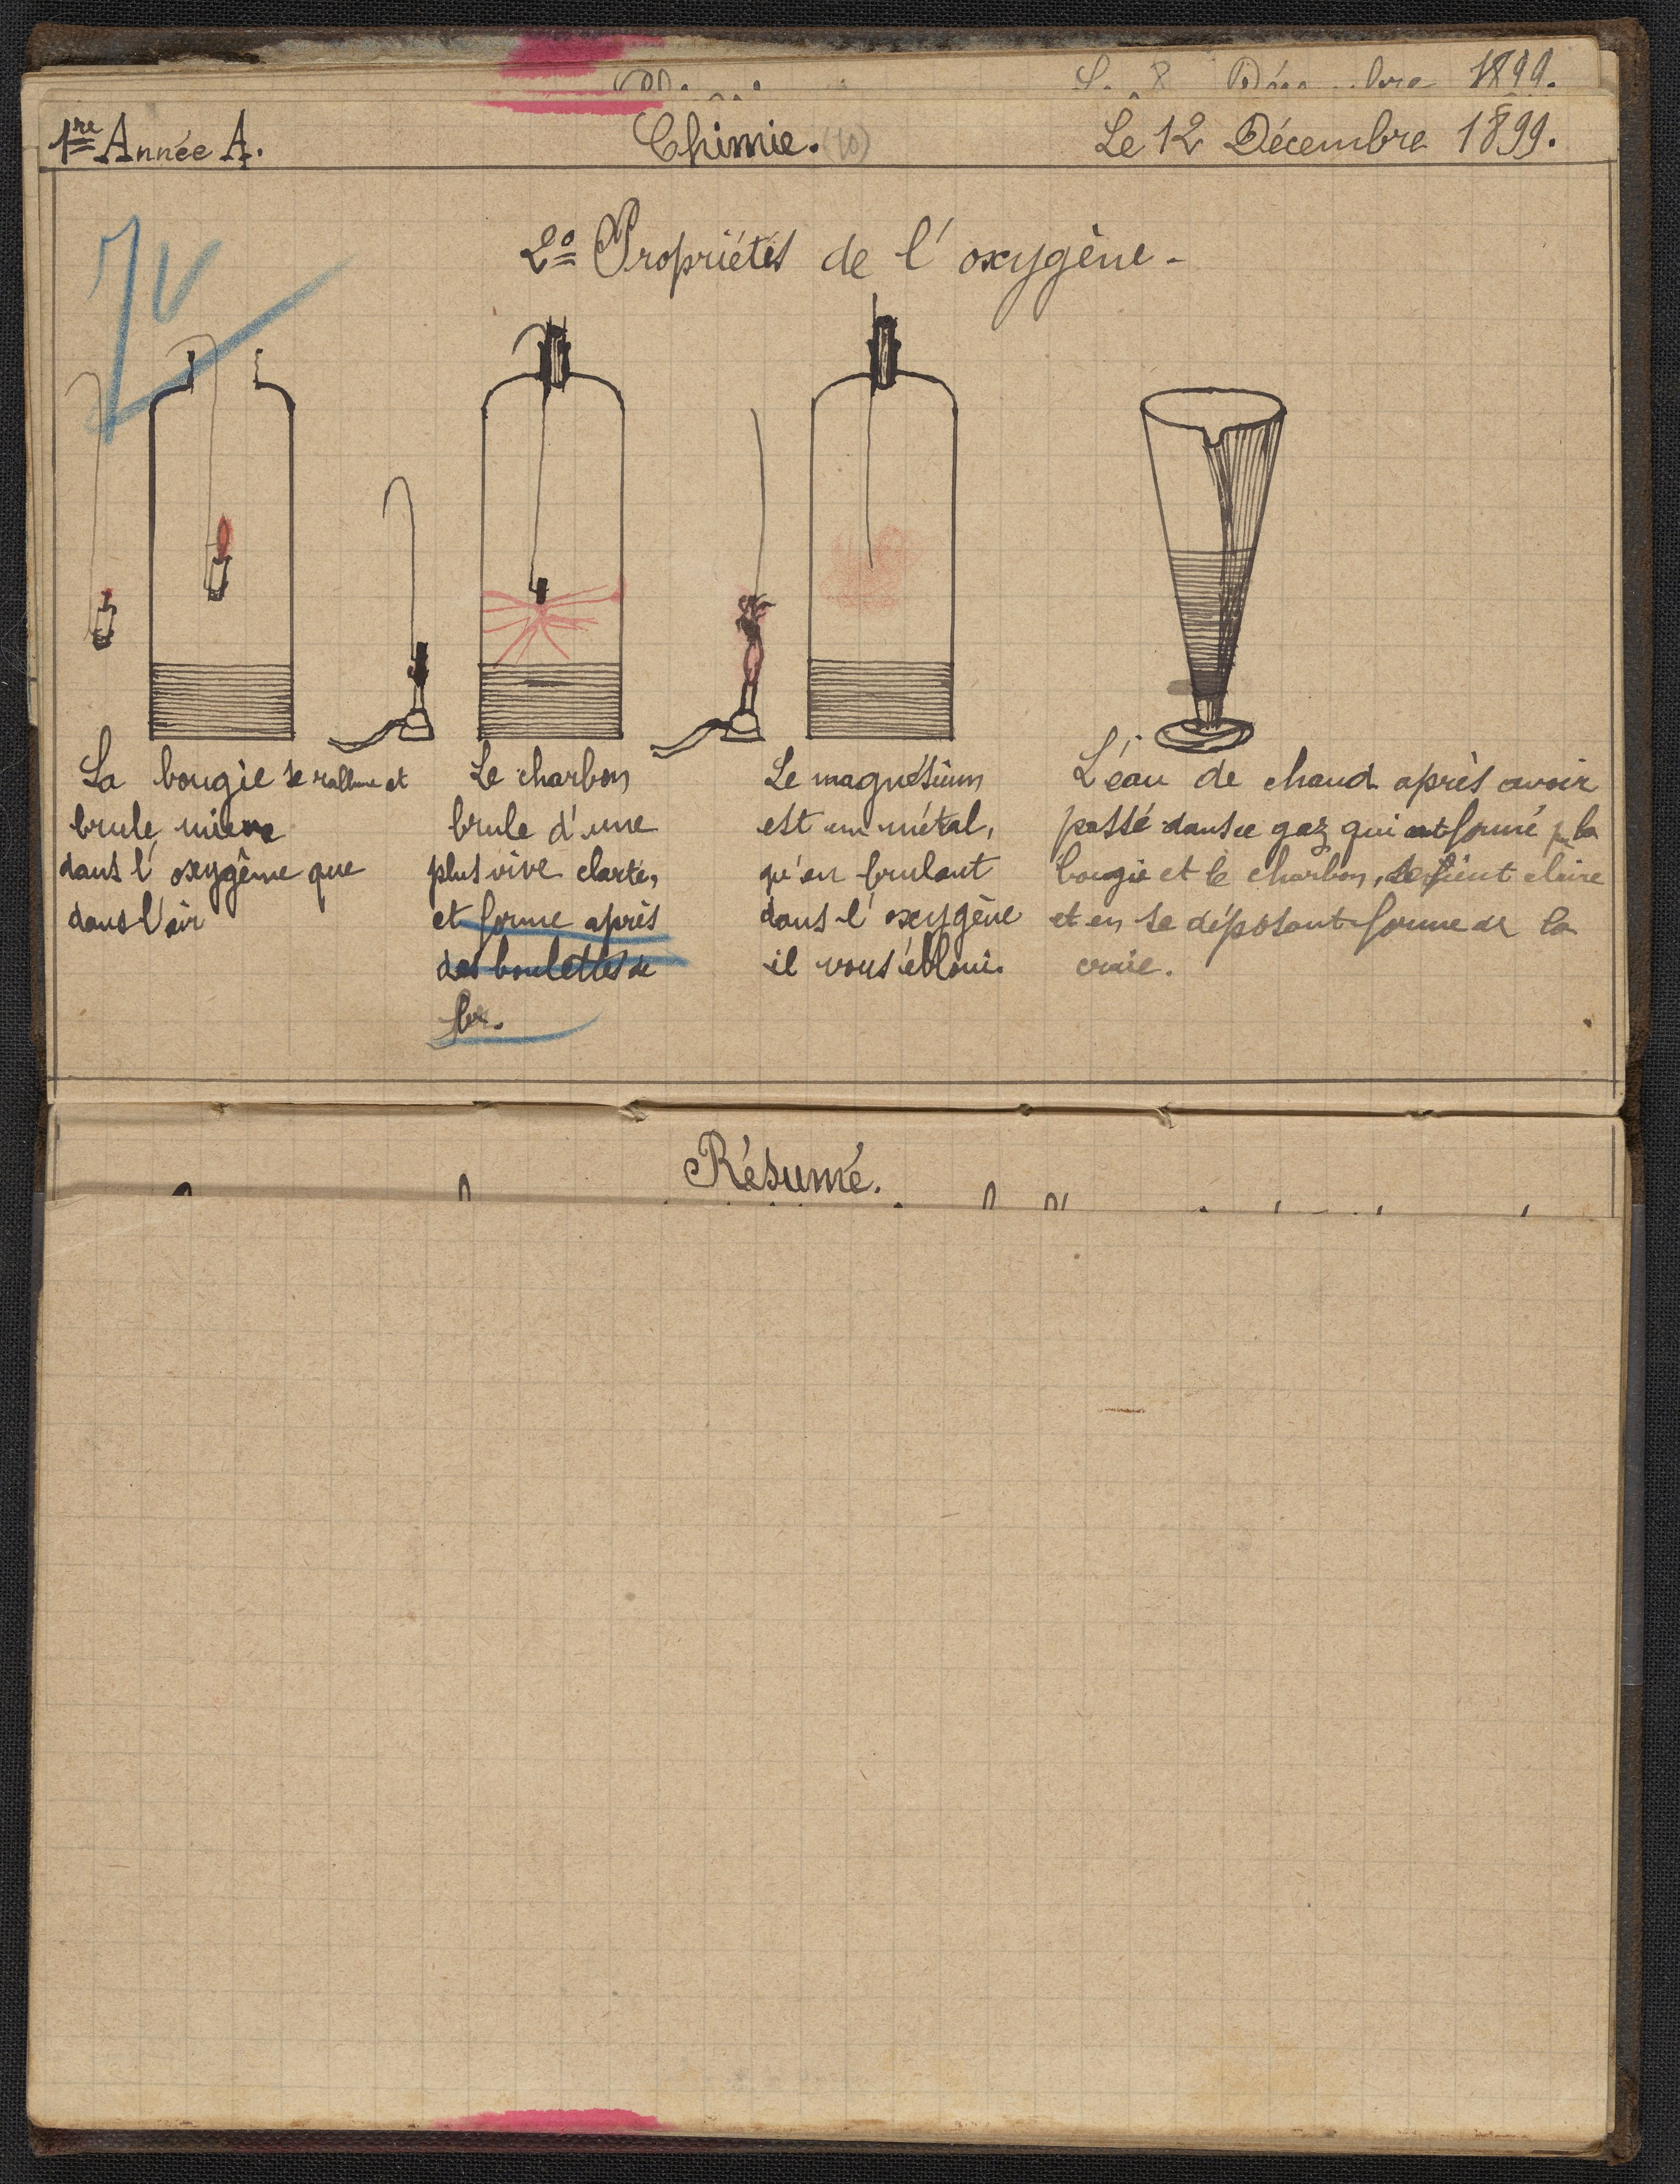 1899.
1re Année A.
Chimie. (10)
Le 12 Décembre 1899.
2o Propriétés de l'oxygène -
La bougie se rallume et
brule mieux
dans l'oxygème que
dans l'air
Le charbon
brule d'une
plus vive clarté,
et forme après
des boulettes de
fer.
Le magnésium
est un métal,
qu'en brulant
dans l'oxygène
il vous ébloui.
L'eau de chaud après avoir
passé dans ce gaz qui formé la
bougie et le charbon, devient claire
et en se déposant forme de la
craie.
Résumé.